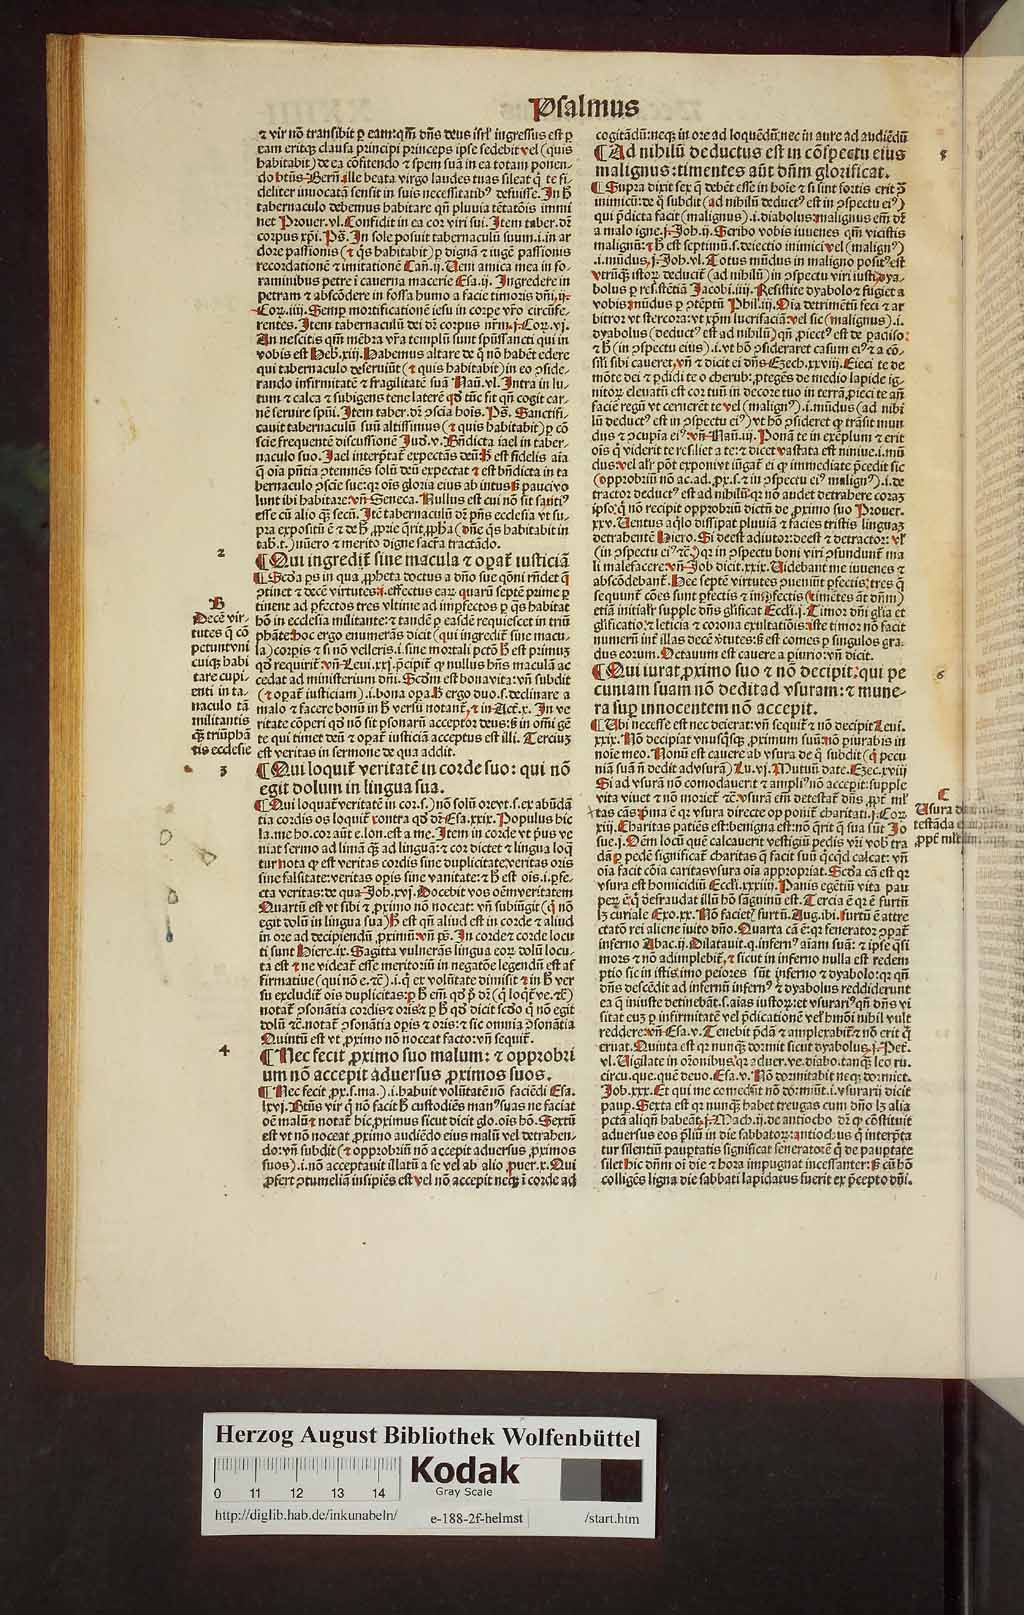 Psalmus
⁊ vir nō transibit ꝑ eam: qm̄ dn̄s deus isrl̓ ingressus est ꝑ
eam eritqꝫ clausa principi princeps ipse sedebit vel (quis
habitabit) de ea cōfitendo ⁊ spem suā in ea totam ponen-
do btūs. Berñ. ille beata virgo laudes tuas sileat q̄ te fi-
deliter inuocatā sensit in suis necessitatibꝰ defuisse. In h̄
tabernaculo debemus habitare qn̄ pluuia tētatōis immi
net Prouer. vl. Confidit in ea cor viri sui. Item taber. dr̄
corpus xp̄i. Ps̄. In sole posuit tabernaculū suum. i. in ar
dore passionis (⁊ q̄s habitabit) ꝑ dignā ⁊ iugē passionis
recordationē ⁊ imitationē Cañ. ij. Ueni amica mea in fo-
raminibus petre i cauerna macerie Esa. ij. Ingredere in
petram ⁊ abscōdere in fossa humo a facie timoris dn̄i. ij.
Coꝝ. iiij. Semꝑ mortificationē iesu in corpe vr̄o circūfe-
rentes. Item tabernaculū dei dr̄ corpus nr̄m. j. Coꝝ. vj.
An nescitis qm̄ mēbra vr̄a templū sunt spūssancti qui in
vobis est Heb̄. xiij. Habemus altare de q̄ nō habēt edere
qui tabernaculo deseruiūt (⁊ quis habitabit) in eo ꝯside-
rando infirmitatē ⁊ fragilitatē suā Nañ. vl. Intra in lu-
tum ⁊ calca ⁊ subigens tene laterē qd̓ tūc fit qn̄ cogit car-
nē seruire spūi. Item taber. dr̄ ꝯscia hoīs. Ps̄. Sanctifi-
cauit tabernaculū suū altissimus (⁊ quis habitabit) ꝑ cō
scie frequentē discussionē Jud. v. Bn̄dicta iael in taber-
naculo suo. Jael interp̄tat̓ expectās deū h̄ est fidelis aīa
q̄ oīa pn̄tia ꝯtemnēs solū deū expectat ⁊ est bn̄dicta in ta
bernaculo ꝯscie sue: qꝛ oīs gloria eius ab intus s̄ pauci vo
lunt ibi habitare: vn̄ Seneca. Nullus est cui nō sit satiꝰ
esse cū alio qꝫ secū. Itē tabernaculū dr̄ pn̄s ecclesia vt su-
pra expositū ē ⁊ de h̄ ꝓprie q̄rit ꝓph̄a (dn̄e q̄s habitabit in
tab̄. t.) nūero ⁊ merito digne sacra tractādo.
2
¶ Qui ingredit̓ sine macula ⁊ opat̓ iusticiā
¶ Scd̓a ps̄ in qua ꝓpheta doctus a dn̄o sue qōni rn̄det q̄
ꝯtinet ⁊ decē virtutes: ⁊ effectus earꝝ quarū septē prime ꝑ
tinent ad ꝑfectos tres vltime ad imꝑfectos ꝑ q̄s habitat
hō in ecclesia militante: ⁊ tandē ꝑ easdē requiescet in triū
phāte: hoc ergo enumerās dicit (qui ingredit̓ sine macu-
la) corpis ⁊ si nō velleris. i. sine mortali pctō h̄ est primuꝫ
qd̓ requirit̓: vn̄ Leui. xxj. p̄cipit̓ qꝫ nullus hn̄s maculā ac
cedat ad ministerium dn̄i. Scd̓m est bonavita: vn̄ subdit
(⁊ opat̓ iusticiam) .i. bona opa. h̄ ergo duo. s. declinare a
malo ⁊ facere bonū in h̄ versu notant̓, ⁊ in Act̄. x. In ve
ritate cōperi qd̓ nō sit psonarū acceptor deus: s̄ in omī gē
te qui timet deū ⁊ opat̓ iusticiā acceptus est illi. Terciuꝫ
est veritas in sermone de qua addit.
B
Decē vir-
tutes q̄ cō
petunt vni
cuiqꝫ habi
tare cupi-
enti in ta-
naculo tā
militantis
qꝫ triūphā
tis ecclesie
3
¶ Qui loquit̓ veritatē in corde suo: qui nō
egit dolum in lingua sua.
¶ Qui loquat̓ veritatē in cor. s.) nō solū ore vt. s. ex abūdā
tia cordis os loquit̓ ⁊ contra qd̓ dr̄. Esa. xxix. Populus hic
la. me ho. cor aūt e. lon. est a me. Item in corde vt pꝰus ve
niat sermo ad limā qꝫ ad linguā: ⁊ cor dictet ⁊ lingua loq̄
tur nota ꝙ est veritas cordis sine duplicitate, veritas oris
sine falsitate: veritas opis sine vanitate: ⁊ h̄ est oīs. i. ꝑfe-
cta veritas: de qua Joh. xvj. Docebit vos oēm veritatem
Quartū est vt sibi ⁊ ꝓximo nō noceat: vn̄ subiūgit (q̄ nō
egit dolū in lingua sua) h̄ est qn̄ aliud est in corde ⁊ aliud
in ore ad decipiendū ꝓximū: vn̄ ps̄. In corde ⁊ corde locu
ti sunt Hiere. ix. Sagitta vulnerās lingua eoꝝ dolū locu-
ta est ⁊ ne videat̓ esse meritoriū in negatōe legendū est af
firmatiue (qui nō e. ⁊c̄) .i. q̄ et volūtate dimisit ⁊ in h̄ ver
su excludit̓ oīs duplicitas: ꝑ h̄ em̄ qd̓ p̄ dr̄ (q̄ loqt̓ ve. ⁊c̄)
notat̓ ꝯsonātia cordis ⁊ oris: ⁊ ꝑ h̄ qd̓ dicit scd̓o q̄ nō egit
dolū ⁊c̄. notat̓ ꝯsonātia opis ⁊ oris: ⁊ sic omnia ꝯsonātia
Quintū est vt ꝓximo nō noceat facto: vn̄ sequit̓.
4
¶ Nec fecit ꝓximo suo malum: ⁊ opprobri
um nō accepit aduersus ꝓximos suos.
¶ Nec fecit ꝓx. s. ma.) .i. habuit volūtatē nō faciēdi Esa.
lxvj. Btūs vir q̄ nō facit h̄ custodiēs manꝰ suas ne faciat
oē malū ⁊ notat̓ hic ꝓximus sicut dicit glo. oīs hō. Sextū
est vt nō noceat ꝓximo audiēdo eius malū vel detrahen-
do: vn̄ subdit (⁊ opprobriū nō accepit aduersus ꝓximos
suos) .i. nō acceptauit illatū a se vel ab alio Prouer. x. Qui
ꝓfert ꝯtumeliā insipiēs est vel nō accepit neqꝫ ī corde ad
cogitādū: neqꝫ in ore ad loquēdū: nec in aure ad audiēdū
5
¶ Ad nihilū deductus est in cōspectu eius
malignus: timentes aūt dn̄m glorificat.
¶ Supra dixit sex q̄ debēt esse in hoīe ⁊ si sint fortis erit ꝯ
inimicū: de q̄ subdit (ad nihilū deductꝰ est in ꝯspectu eiꝰ)
qui p̄dicta facit (malignus) .i. diabolus: malignus em̄ dr̄
a malo igne. j. Joh. ij. Scribo vobis iuuenes qm̄ vicistis
malignū: ⁊ h̄ est septimū. s. deiectio inimici vel (malignꝰ)
.i. mūdus, j. Joh. vl. Totus mūdus in maligno positꝰ est
vtrūqꝫ istoꝝ deducit̓ (ad nihilū) in ꝯspectu viri iusti, dya-
bolus ꝑ resistētiā Jacobi. iiij. Resistite dyabolo ⁊ fugiet a
vobis: mūdus ꝑ ꝯtēptū Phil. iij. Oīa detrimētū feci ⁊ ar
bitror vt stercora: vt xp̄m lucrifaciā: vel sic (malignus) .i.
dyabolus (deductꝰ est ad nihilū) qn̄ ꝓiectꝰ est de padiso:
⁊ h̄ (in ꝯspectu eius) .i. vt hō ꝯsideraret casum eiꝰ ⁊ a cō-
sili sibi caueret, vn̄ ⁊ dicit ei dn̄s Ezech. xxviij. Eieci te de
mōte dei ⁊ ꝑdidi te o cherub: ꝓtegēs de medio lapidē ig-
nitoꝝ eleuatū est cor tuū in decore tuo in terrā ꝓieci te añ
faciē regū vt cernerēt te vel (malignꝰ) .i. mūdus (ad nihi
lū deductꝰ est in ꝯspectu eiꝰ) vt hō ꝯsideret ꝙ trāsit mun
dus ⁊ ꝯcupīa eiꝰ: vn̄. Naū. iij. Ponā te in exēplum ⁊ erit
oīs q̄ viderit te resiliet a te: ⁊ dicet vastata est niniue. i. mū
dus: vel alr̄ pōt exponi vt iūgat̓ ei qd̓ immediate p̄cedit sic
(opprobriū nō ac. ad. ꝓx. s. ⁊ in ꝯspectu eiꝰ malignꝰ) .i. de
tractor deductꝰ est ad nihilū: qꝛ nō audet detrahere coraꝫ
ipso: q̄ nō recipit opprobriū dictū de ꝓximo suo Prouer.
xxv. Uentus aq̄lo dissipat pluuiā ⁊ facies tristis linguaꝫ
detrahentē Hiero. Si deest adiutor: deest ⁊ detractor: vl̓
(in ꝯspectu eiꝰ ⁊c̄.) qꝛ in ꝯspectu boni viri ꝯfundunt̓ ma
li malefacere: vn̄. Job dicit. xxix. Uidebant me iuuenes ⁊
abscōdebant̓. Hee septē virtutes ꝓueniūt ꝑfectis: tres q̄
sequunt̓ cōes sunt ꝑfectis ⁊ imꝑfectis (timētes aūt dn̄m)
etiā initialr̓ supple dn̄s glificat Eccl̓i. j. Timor dn̄i gl̓ia et
glificatio, ⁊ leticia ⁊ corona exultatiōis: iste timor nō facit
numerū int̓ illas decē ꝟtutes: s̄ est comes ꝑ singulos gra-
dus eorum. Octauum est cauere a piurio: vn̄ dicit.
6
¶ Qui iurat ꝓximo suo ⁊ nō decipit: qui pe
cuniam suam nō dedit ad vsuram: ⁊ mune-
ra suꝑ innocentem nō accepit.
¶ Ubi necesse est nec deierat: vn̄ sequit̓ ⁊ nō decipit Leui.
xxix. Nō decipiat vnusq̄sqꝫ ꝓximum suū: nō piurabis in
noīe meo. Nonū est cauere ab vsura de q̄ subdit (q̄ pecu
niā suā ñ dedit ad vsurā) Lu. vj. Mutuū date. Ezec. xviij
Si ad vsurā nō comodauerit ⁊ ampliꝰ nō acceꝑit: supple
vita viuet ⁊ nō moriet̓ ⁊c̄. vsurā em̄ detestat̓ dn̄s ꝓpt̓ ml̓
tas cās, prima ē qꝛ vsura directe opponit̓ charitati. j. Coꝝ
xiij. Charitas patiēs est: benigna est: nō q̄rit q̄ sua sūt Jo
sue. j. Oēm locū quē calcauerit vestigiū pedis vr̄i vob̓ tra
dā ꝑ pedē significat̓ charitas q̄ facit suū q̄cqd̓ calcat: vn̄
oīa facit cōia caritas: vsura oīa appropriat. Scd̓a cā est qꝛ
vsura est homicidiū Eccl̓i. xxxiiij. Panis egētiū vita pau
perꝝ ē: q̄ defraudat illū hō sanguinū est. Tercia ē qꝛ ē furtū
lꝫ curiale Exo. xx. Nō facietꝭ furtū. Aug. ibi. furtū ē attre
ctatō rei aliene inuito dn̄o. Quarta cā ē: qꝛ fenerator ꝯpat̓
inferno Abac. ij. Dilatauit. q. infernꝰ aīam suā: ⁊ ipse q̄si
mors ⁊ nō adimplebit̓, ⁊ sicut in inferno nulla est redem
ptio sic in istis imo peiores sūt inferno ⁊ dyabolo: qꝛ qn̄
dn̄s descēdit ad infernū infernꝰ ⁊ dyabolus reddiderunt
ea q̄ iniuste detinebāt. s. aīas iustoꝝ: et vsurariꝰ qn̄ dn̄s vi
sitat euꝫ ꝑ infirmitatē vel p̄dicationē vel̓ hmōi nihil vult
reddere: vn̄ Esa. v. Tenebit p̄dā ⁊ amplexabit̓ ⁊ nō erit q̄
eruat. Quinta est qꝛ nunqꝫ dormit sicut dyabolus. j. Pet̓.
vl. Uigilate in orōnibus: qꝛ aduer. ve. diabo. tanqꝫ leo ru.
circu. que. quē deuo. Esa. v. Nō dormitabit neqꝫ dormiet.
Job. xxx. Et qui me comedūt nō dormiūt. i. vsurarij dicit
paup. Sexta est qꝛ nunqꝫ habet treugas cum dn̄o lꝫ alia
pctā aliqn̄ habeāt. j. Mach. ij. de antiocho dr̄ ꝙ cōstituit
aduersus eos p̄liū in die sabbatoꝝ: antiochus q̄ interp̄ta
tur silentiū paupertatis significat feneratorē q̄ de paupertate
silet hic dn̄m oī die ⁊ hora impugnat incessanter: s̄ cū hō
colligēs ligna die sabbati lapidatus fuerit ex p̄cepto dn̄i.
C
Usura
testāda
ꝓpt̓
Herzog August Bibliothek Wolfenbüttel
Kodak
Gray Scale
0 11 12 13 14
http://diglib.hab.de/inkunabeln/ e-188-2f-helmst /start.htm